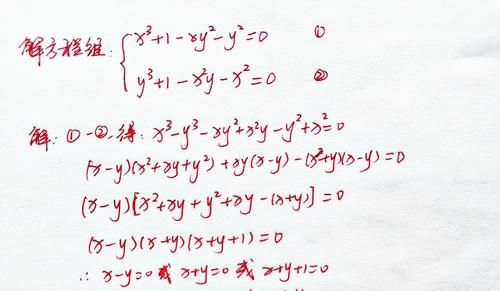 解方程组: { x³+1-xy²-y²=0 ①
y³+1-x²y-x²=0 ②
解: ①-②得: x³-y³-xy²+x²y-y²+x²=0
(x-y)(x²+xy+y²)+xy(x-y)-(x+y)(x-y)=0
(x-y)[x²+xy+y²+xy-(x+y)]=0
(x-y)(x+y)(x+y+1)=0
∴ x-y=0 或 x+y=0 或 x+y+1=0